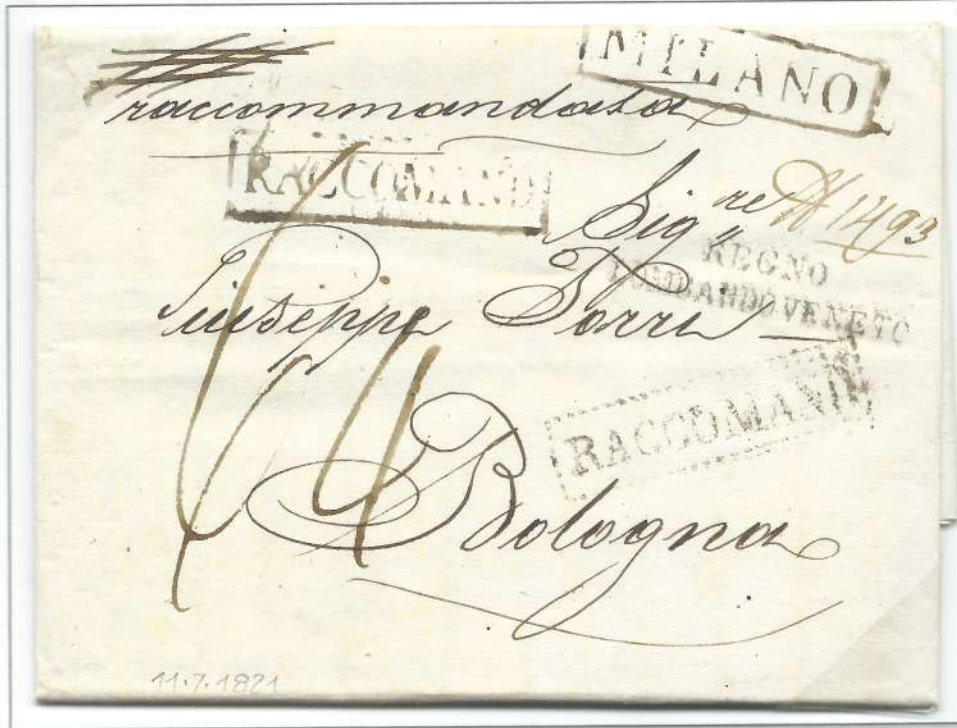 MILANO
raccommandata
RACCOMAND
Sig.re N 1493
REGNO
LOMBARDO VENETO
Giuseppe Torri
RACCOMAND
Bologna
11.7.1821